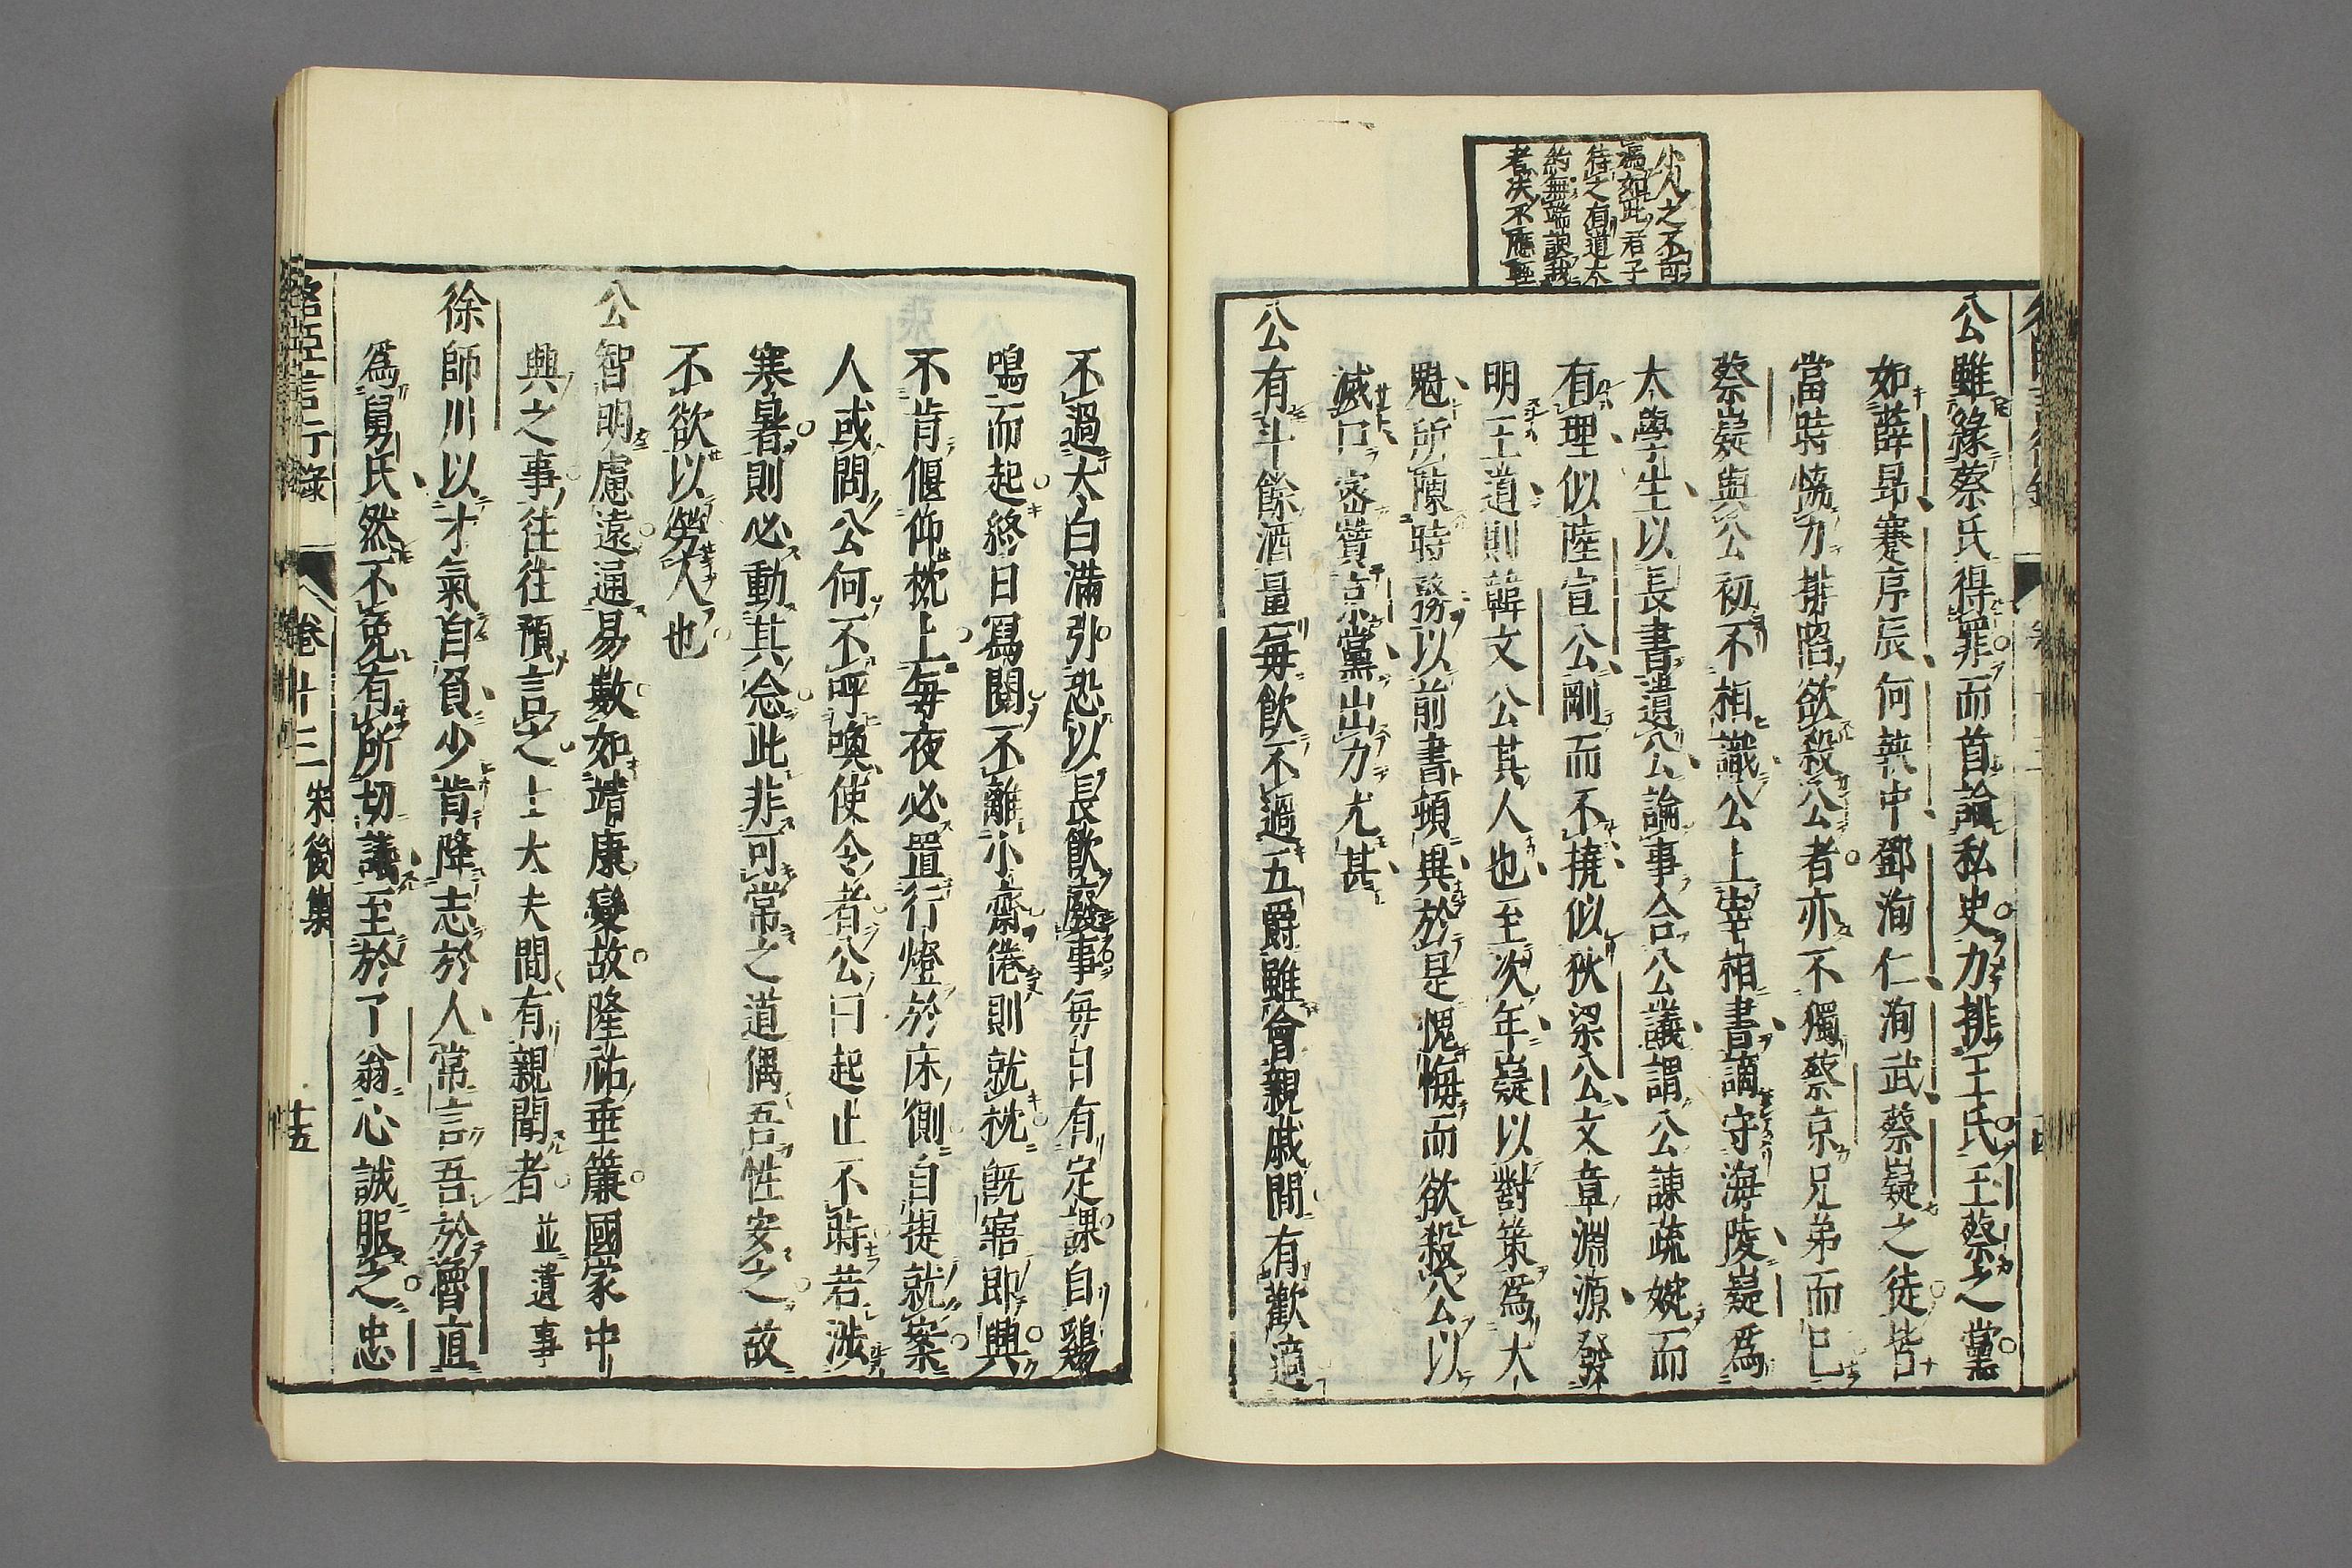 小人之不可
為如此君子
待之有道大
約無端誤我
者决不應輕
公雖緣蔡氏得罪而首論私史力排王氏王蔡之黨
如薛昻蹇序辰何執中鄧洵仁洵武蔡嶷之徒皆
當時恊力排陷欲殺公者亦不獨蔡京兄弟而已
蔡嶷與公初不相識公上宰相書謫守海陵嶷爲
太學生以長書遺公論事合公議謂公諫疏婉而
有理似陸宣公剛而不撓似狄梁公文章淵源發
明王道則韓文公其人也至次年嶷以對策爲大
魁所陳時務以前書頓異於是愧悔而欲殺公以
滅口密賛京黨出力尤甚
公有斗餘酒量毎飲不過五爵雖會親戚間有歡適
不過大白滿引恐以長飲廢事毎日有定課自鷄
鳴而起終日寫閱不離小齋倦則就枕旣寤即興
不肯偃仰枕上毎夜必置行燈於床側自提就案
人或問公何不呼喚使令者公曰起止不時若涉
寒暑則必動其念此非可常之道偶吾性安之故
不欲以勞人也
公智明慮遠通易數如靖康變故隆祐垂簾國家中
興之事往往預言之士大夫間有親聞者 並遺事
徐師川以才氣自負少肯降志於人常言吾於魯直
爲舅氏然不免有所切議至於了翁心誠服之忠
名臣言行錄 卷十三 宋後集 十五